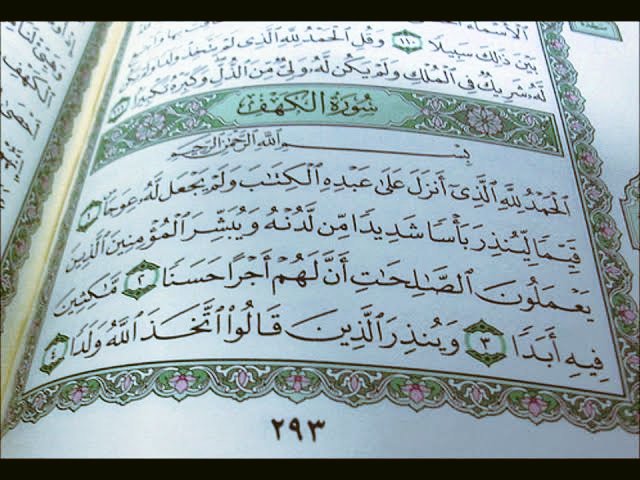 الأسماء
بين ذلك سبيلا ١١٠ وقل الحمد لله الذي لم يتخذ ولدا ولم يكن
له شريك في الملك ولم يكن له ولي من الذل وكبره تكبيرا ١١١
سُورَةُ الكَهْفِ
بِسْمِ اللَّهِ الرَّحْمَٰنِ الرَّحِيمِ
الْحَمْدُ لِلَّهِ الَّذِي أَنزَلَ عَلَىٰ عَبْدِهِ الْكِتَابَ وَلَمْ يَجْعَل لَّهُ عِوَجَا ١
قَيِّمًا لِّيُنذِرَ بَأْسًا شَدِيدًا مِّن لَّدُنْهُ وَيُبَشِّرَ الْمُؤْمِنِينَ الَّذِينَ
يَعْمَلُونَ الصَّالِحَاتِ أَنَّ لَهُمْ أَجْرًا حَسَنًا ٢ مَّاكِثِينَ
فِيهِ أَبَدًا ٣ وَيُنذِرَ الَّذِينَ قَالُوا اتَّخَذَ اللَّهُ وَلَدًا ٤
٢٩٣